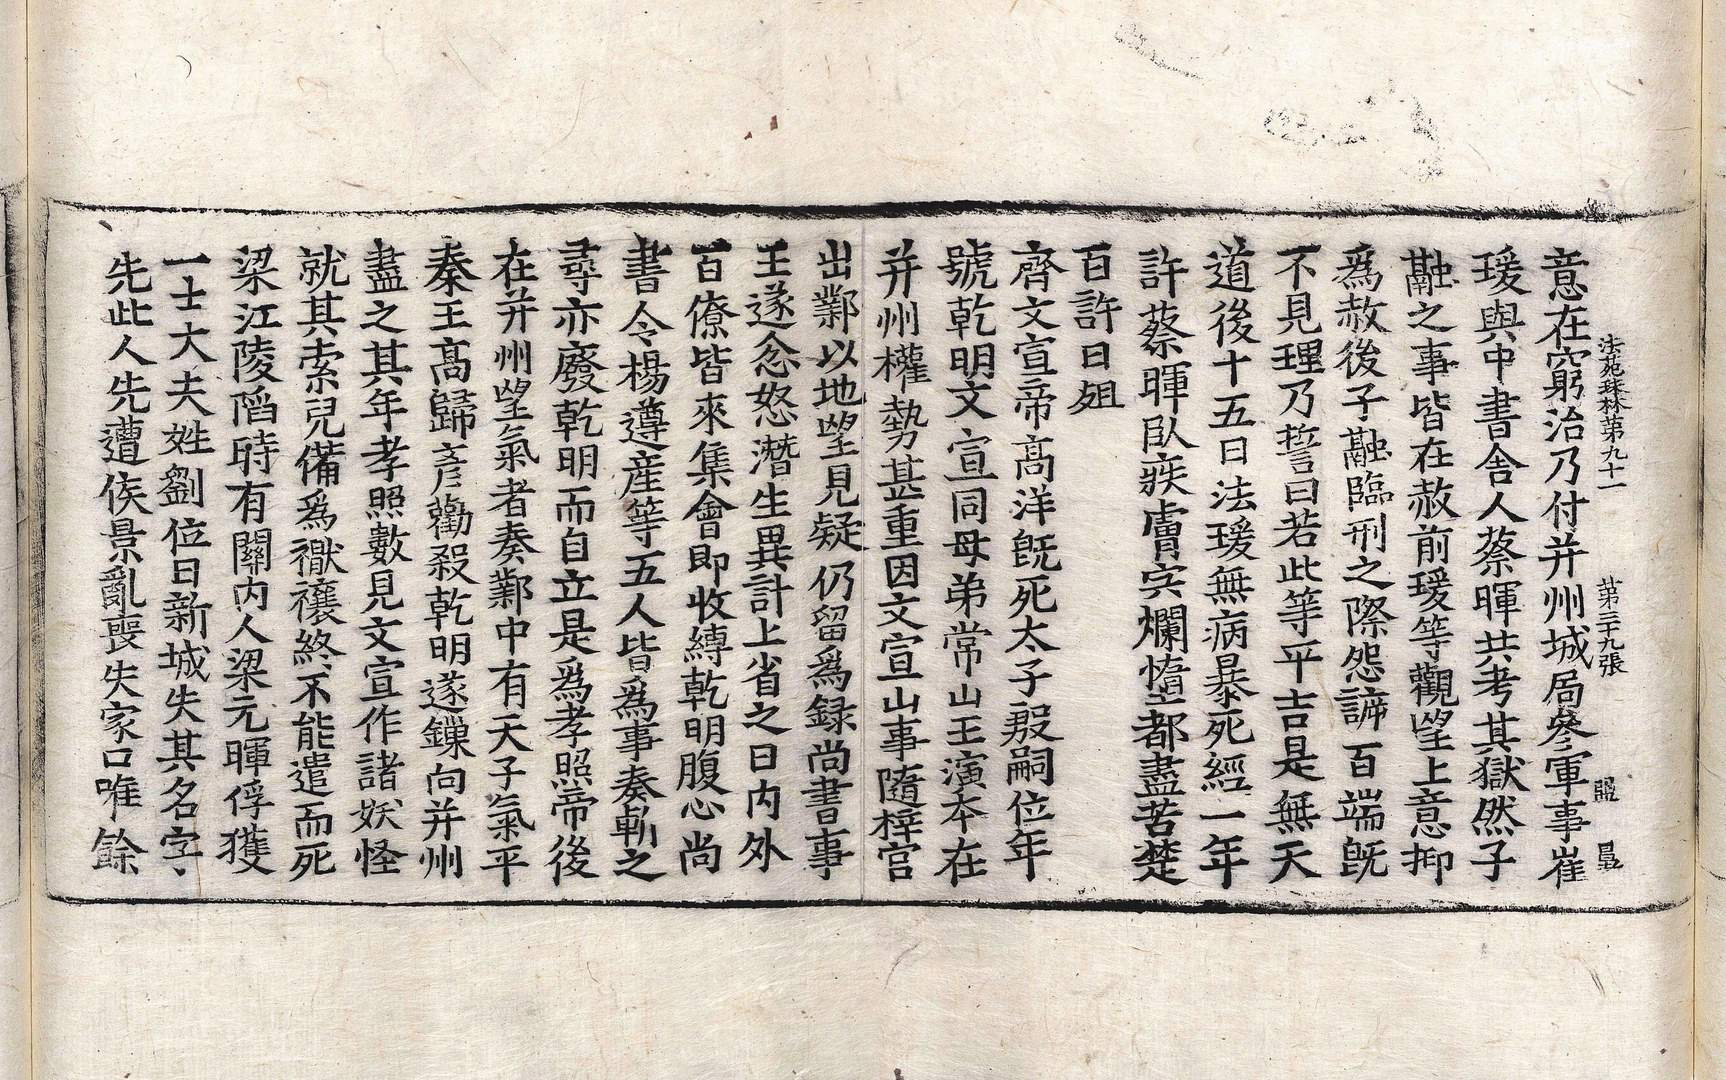 法苑珠林第九十一 第三十九張 昷
意在窮治乃付并州城局叅軍事崔
瑗與中書舎人蔡暉共考其獄然子
融之事皆在赦前瑗等觀望上意抑
爲赦後子融臨刑之際怨諦百端旣
不見理乃誓曰若此等平吉是無天
道後十五日法瑗無病暴死經一年
許蔡暉臥疾膚宍爛憜都盡苦楚
百許日殂
齊文宣帝高洋旣死太子殷嗣位年
號乾明文宣同母弟常山王演本在
并州權勢甚重因文宣山事隨梓宮
出鄴以地望見疑仍留爲録尚書事
王遂忿怒潛生異計上省之日内外
百僚皆來集會即收縛乾明腹心尚
書令楊遵産等五人皆爲事奏斬之
尋亦廢乾明而自立是爲孝照帝後
在并州望氣者奏鄴中有天子氣平
秦王高歸彦勸殺乾明遂鏁向并州
盡之其年孝照數見文宣作諸妖怪
就其索兒備爲禳禳終不能遣而死
梁江陵䧟時有關内人梁元暉俘獲
一士大夫姓劉位曰新城失其名字
先此人先遭侯景亂喪失家口唯餘